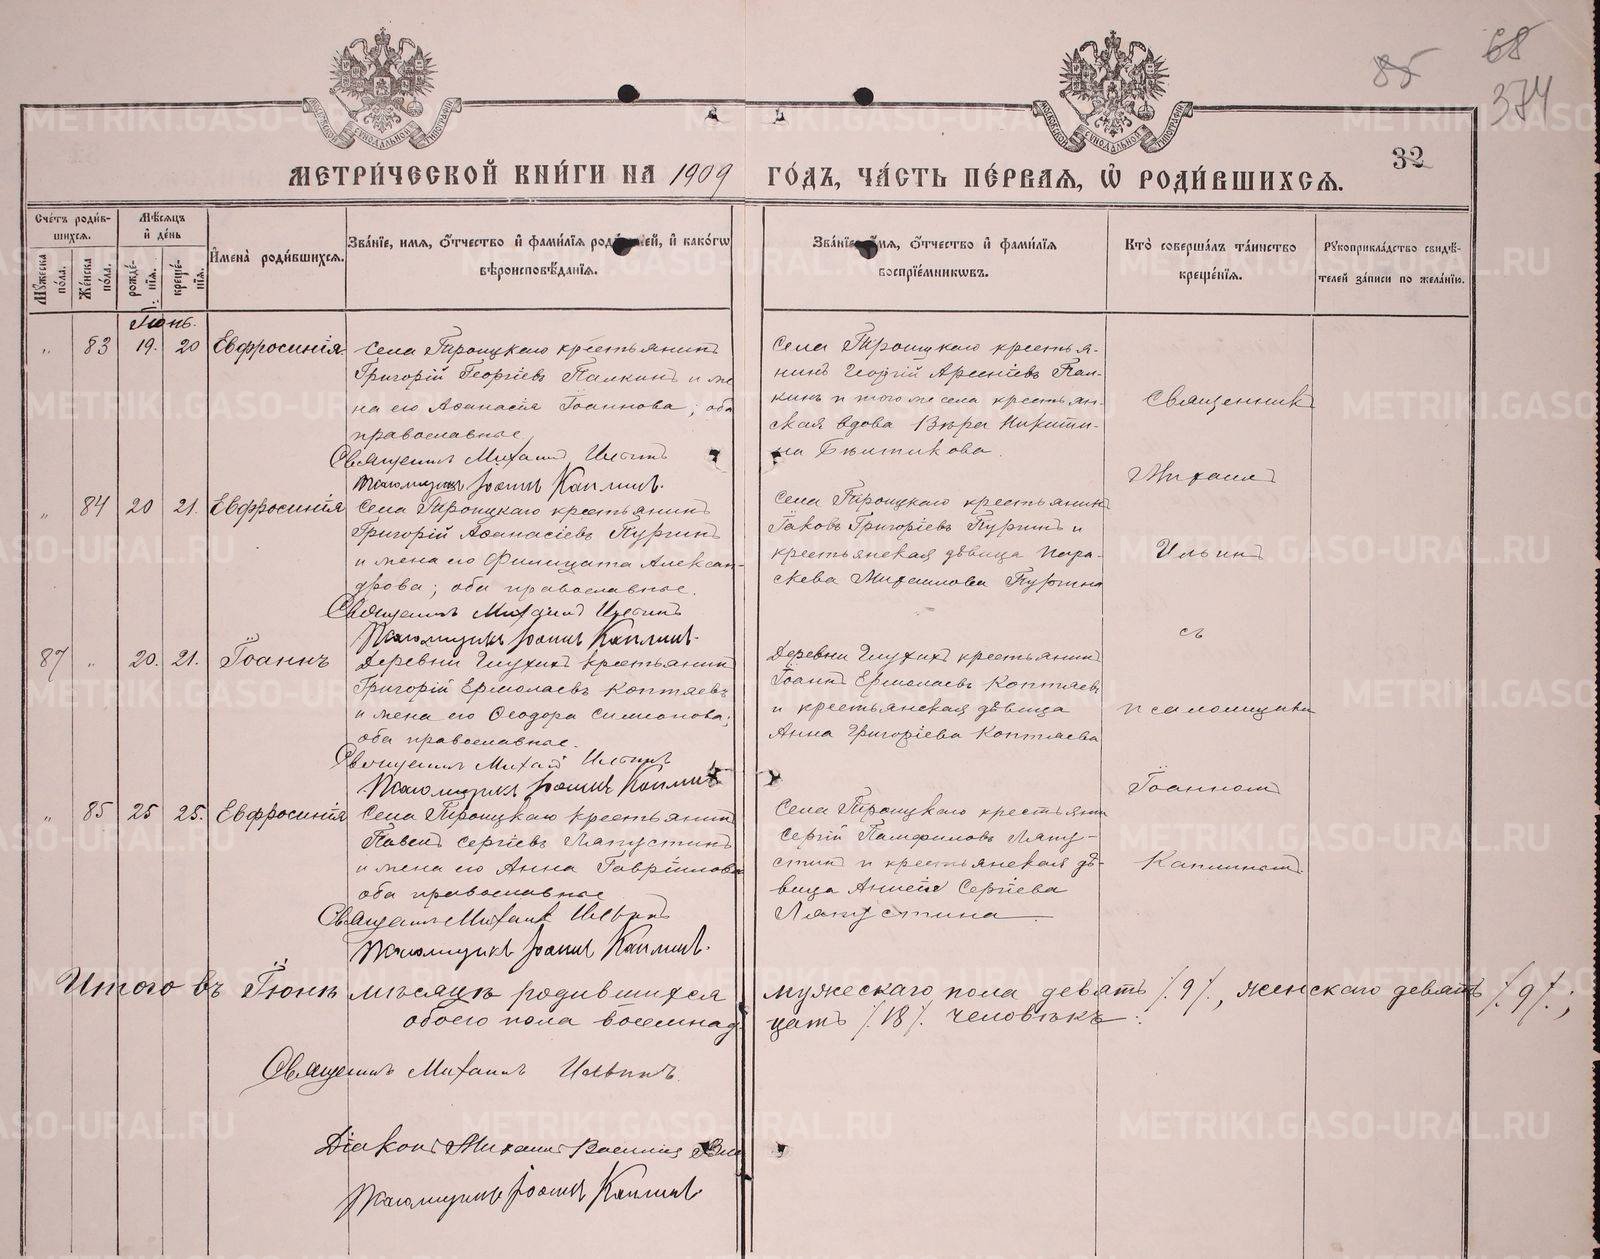 85 68
374
МЕТРИ́ЧЕСКОЙ КНИ́ГИ НА 1909 ГО́ДЪ, ЧА́СТЬ ПЕ́РВАЯ, Ѡ РОДИ́ВШИХСЯ.
32
Сче́тъ роди́вшихся.
Мѣ́сяцъ и де́нь
Му́жеска по́ла.
Же́нска по́ла.
рожде́нїя.
креще́нїя.
Имена̀ роди́вшихся.
Зва́нїе, имя, о́тчество и фами́лїя роди́телей, и како́гѡ вѣроисповѣ́данїя.
Зва́нїе, имя, о́тчество и фами́лїя воспрїе́мникѡвъ.
Кто̀ соверша́лъ та́инство креще́нїя.
Рукоприкла́дство свидѣ́телей за́писи по жела́нїю.
Іюнь.
„ 83 19. 20 Евфросинія.
Села Троицкаго крестьянинъ
Григорій Георгіевъ Палкинъ и же
на его Аѳанасія Іоаннова; оба
православные
Священникъ Михаилъ Ильинъ
Псаломщикъ Іоаннъ Каплинъ.
Села Троицкаго крестья-
нинъ Георгій Арсеніевъ Пал-
кинъ и того же села крестьян-
ская вдова Вѣра Никити-
на
„ 84 20 21. Евфросинія
Села Троицкаго крестьянинъ
Григорій Аѳанасіевъ Пургинъ
и жена его Филицата Алексан-
дрова; оба православные.
Священникъ Михаилъ Ильинъ
Псаломщикъ Іоаннъ Каплинъ.
Села Троицкаго крестьянинъ
Іаковъ Григоріевъ Пургинъ и
крестьянская дѣвица Пара-
скева Михаилова Пургина
87 „ 20. 21. Іоаннъ
Деревни Глухихъ крестьянинъ
Григорій Ермолаевъ Коптяевъ
и жена его Ѳеодора Симеонова;
оба православные.
Священникъ Михаилъ Ильинъ
Псаломщикъ Іоаннъ Каплинъ
Деревни Глухихъ крестьянинъ
Іоаннъ Ермолаевъ Коптяевъ
и крестьянская дѣвица
Анна Григоріева Коптяева
„ 85 25 25. Евфросинія
Села Троицкаго крестьянинъ
Павелъ Сергіевъ Лапустинъ
и жена его Анна Гавріилова
оба православные
Священникъ Михаилъ Ильинъ
Псаломщикъ Іоаннъ Каплинъ.
Села Троицкаго крестьянинъ
Сергій Памфиловъ Лапу-
стинъ и крестьянская дѣ-
вица Анисія Сергіева
Лапустина.
Священникъ
Михаилъ
Ильинъ
съ
псаломщикомъ
Іоанномъ
Каплинымъ.
Итого въ Іюнѣ мѣсяцѣ родившихся мужескаго пола девять /.9/., женскаго девять /.9/.;
обоего пола восемнадцать /.18/. человѣкъ.
Священникъ Михаилъ Ильинъ.
Діаконъ Михаилъ
Псаломщикъ Іоаннъ Каплинъ
METRIKI.GASO-URAL.RU